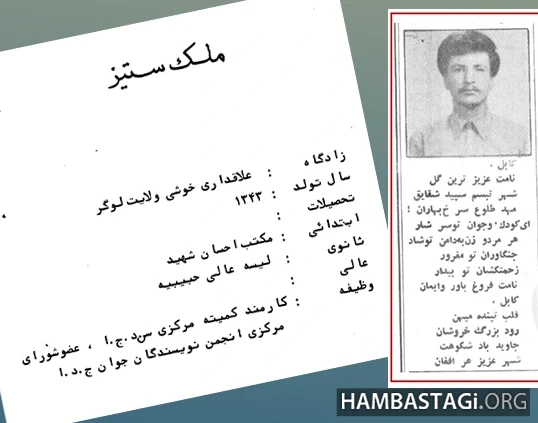 ملک ستیز
زادگاه : علاقداری خوشی ولایت لوگر
سال تولد : ۱۳۴۳
تحصیلات :
ابتدائی : مکتب احسان شهید
ثانوی : لیسه عالی حبیبیه
عالی :
وظیفه : کارمند کمیته مرکزی س.د.ج.ا ، عضو شورای
مرکزی انجمن نویسندگان جوان ج.د.ا
کابل .
نامت عزیز ترین گل
شهر تبسم سپید شقایق
مهد طلوع سرخ بهاران :
ای کودک وجوان توسر شار
هر مردو زن به دامن توشاد
جنگاوران تو مغرور
زحمتکشان تو بیدار
نامت فروغ باور وایمان
کابل .
قلب تپنده میهن
رود بزرگ خروشان
جاوید باد شکوهت
شهر عزیز هر افغان
HAMBASTAGi.ORG